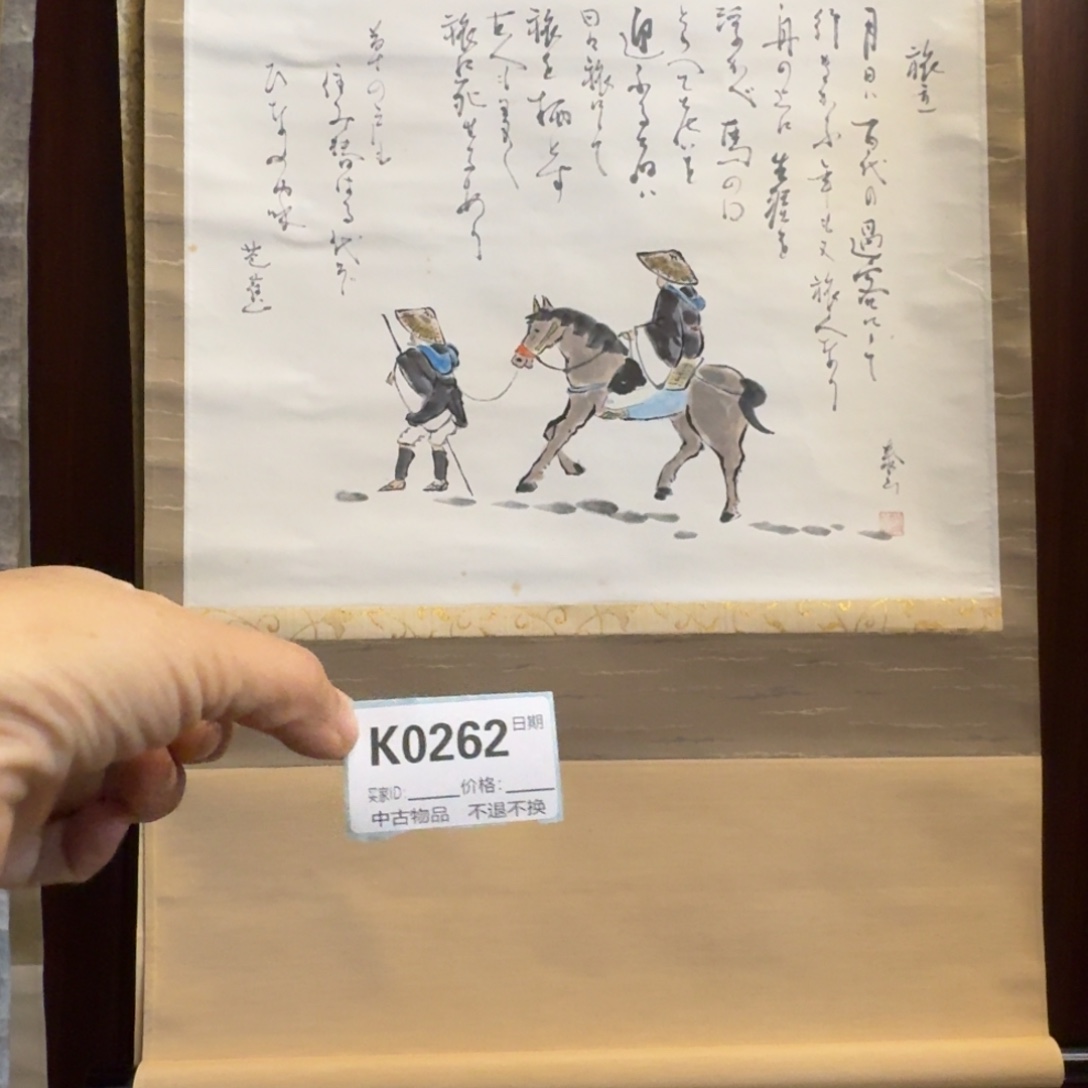 旅立
月日は百代の過客にして
行きかふ年も又旅人なり
舟の上に生涯を
浮かべ馬の口
とらへて老いを
迎ふる者は
日々旅にして
旅を栖とす
古人も多く
旅に死せるあり
草の戸も
住み替はる代ぞ
ひなの家
芭蕉
K0262 日期
买家ID:_____价格:_____
中古物品 不退不换